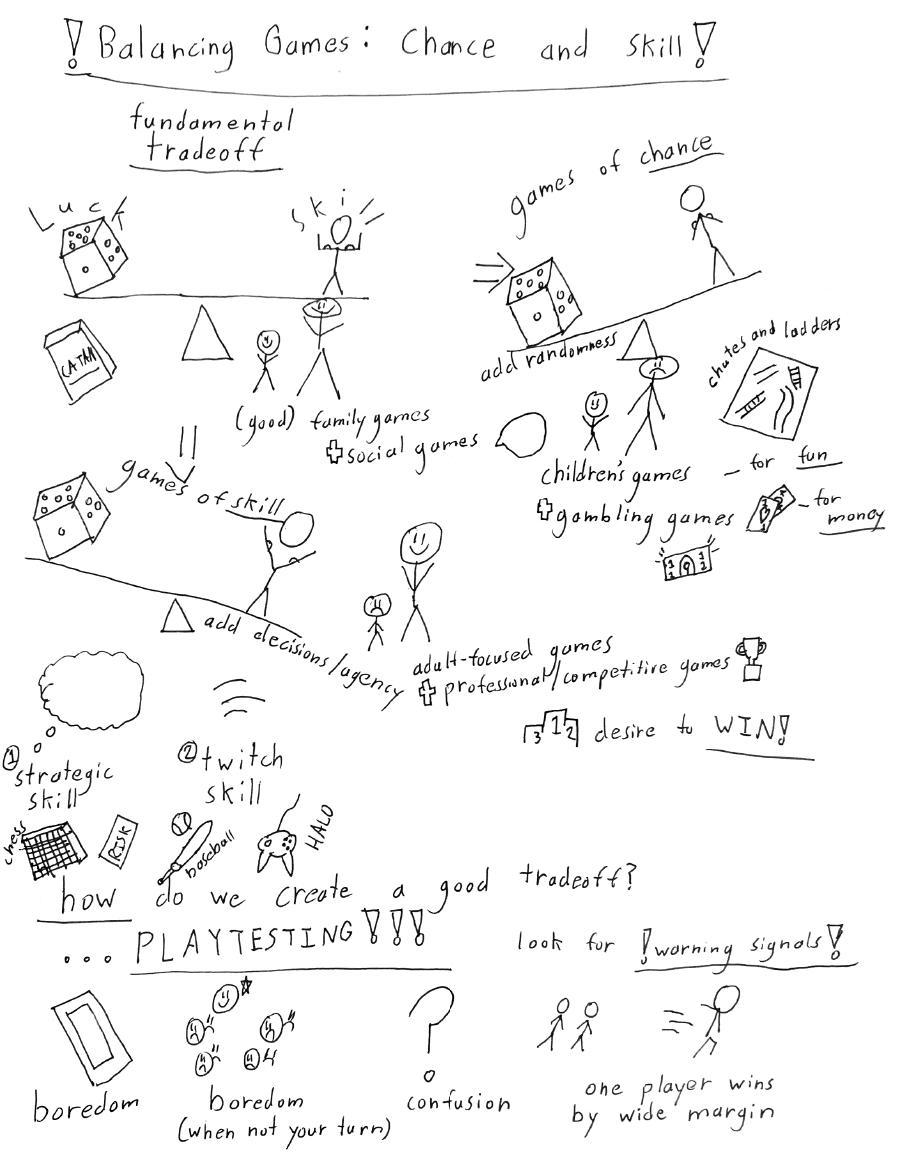 ! Balancing Games: Chance and Skill!
fundamental
tradeoff
Luck
Ski
CATAN
(good) family games
+ social games
games of chance
add randomness
chutes and ladders
children's games - for fun
+ gambling games - for
money
games of skill
add decisions/agency
adult-focused games
+ professional/competitive games
3 1 2 desire to WIN!
① strategic
skill
chess
RISK
② twitch
skill
baseball
HALO
how do we create a good tradeoff?
... PLAYTESTING!!!
look for !warning signals!
boredom
boredom
(when not your turn)
confusion
one player wins
by wide margin